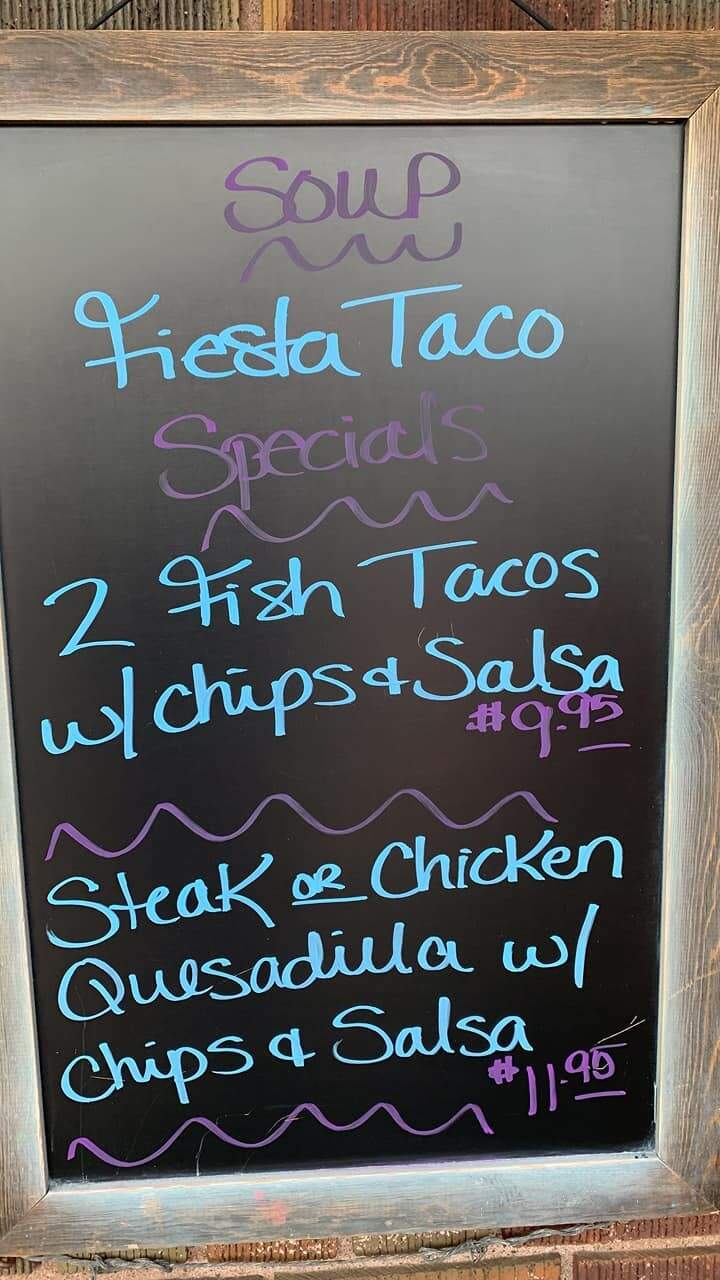 Soup
Fiesta Taco
Specials
2 Fish Tacos
w/ chips & Salsa
$9.95
Steak OR Chicken
Quesadilla w/
Chips & Salsa
$11.95